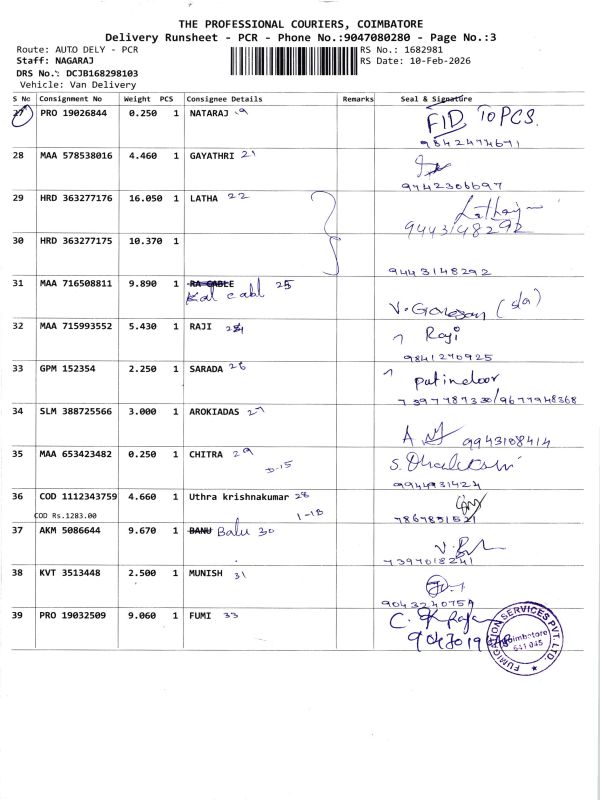 THE PROFESSIONAL COURIERS, COIMBATORE
Delivery Runsheet - PCR - Phone No.:9047080280 - Page No.:3
Route: AUTO DELY - PCR RS No.: 1682981
Staff: NAGARAJ RS Date: 10-Feb-2026
DRS No.: DCJB168298103
Vehicle: Van Delivery
S No Consignment No Weight PCS Consignee Details Remarks Seal & Signature
27 PRO 19026844 0.250 1 NATARAJ FID TO PCS.
9842474671
28 MAA 578538016 4.460 1 GAYATHRI 21
9742306697
29 HRD 363277176 16.050 1 LATHA 22
9443148292
30 HRD 363277175 10.370 1
9443148292
31 MAA 716508811 9.890 1 RA CABLE 25
Kal cabl
32 MAA 715993552 5.430 1 RAJI Raji
9841270925
33 GPM 152354 2.250 1 SARADA 26 put indoor
7397787330/9677948368
34 SLM 388725566 3.000 1 AROKIADAS 27
9943108414
35 MAA 653423482 0.250 1 CHITRA 29
D-15
9944931424
36 COD 1112343759 4.660 1 Uthra krishnakumar 28
COD Rs.1283.00 1-1B
7867851521
37 AKM 5086644 9.670 1 BANU Balu 30
7397018241
38 KVT 3513448 2.500 1 MUNISH 31
39 PRO 19032509 9.060 1 FUMI 33
FUMIGATION SERVICES PVT. LTD.
Coimbatore
641 045